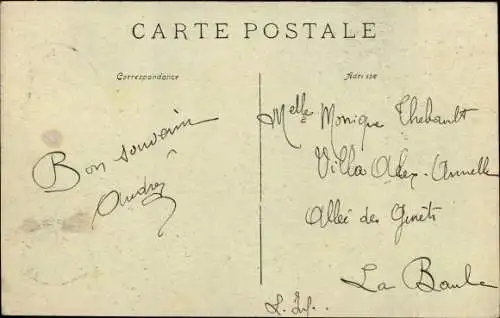 CARTE POSTALE
Correspondance
Adresse
Bon souvenir
Melle Monique Thebault
Villa Alex-Annelle
Allée des Genêts
La Baule
L. Inf.